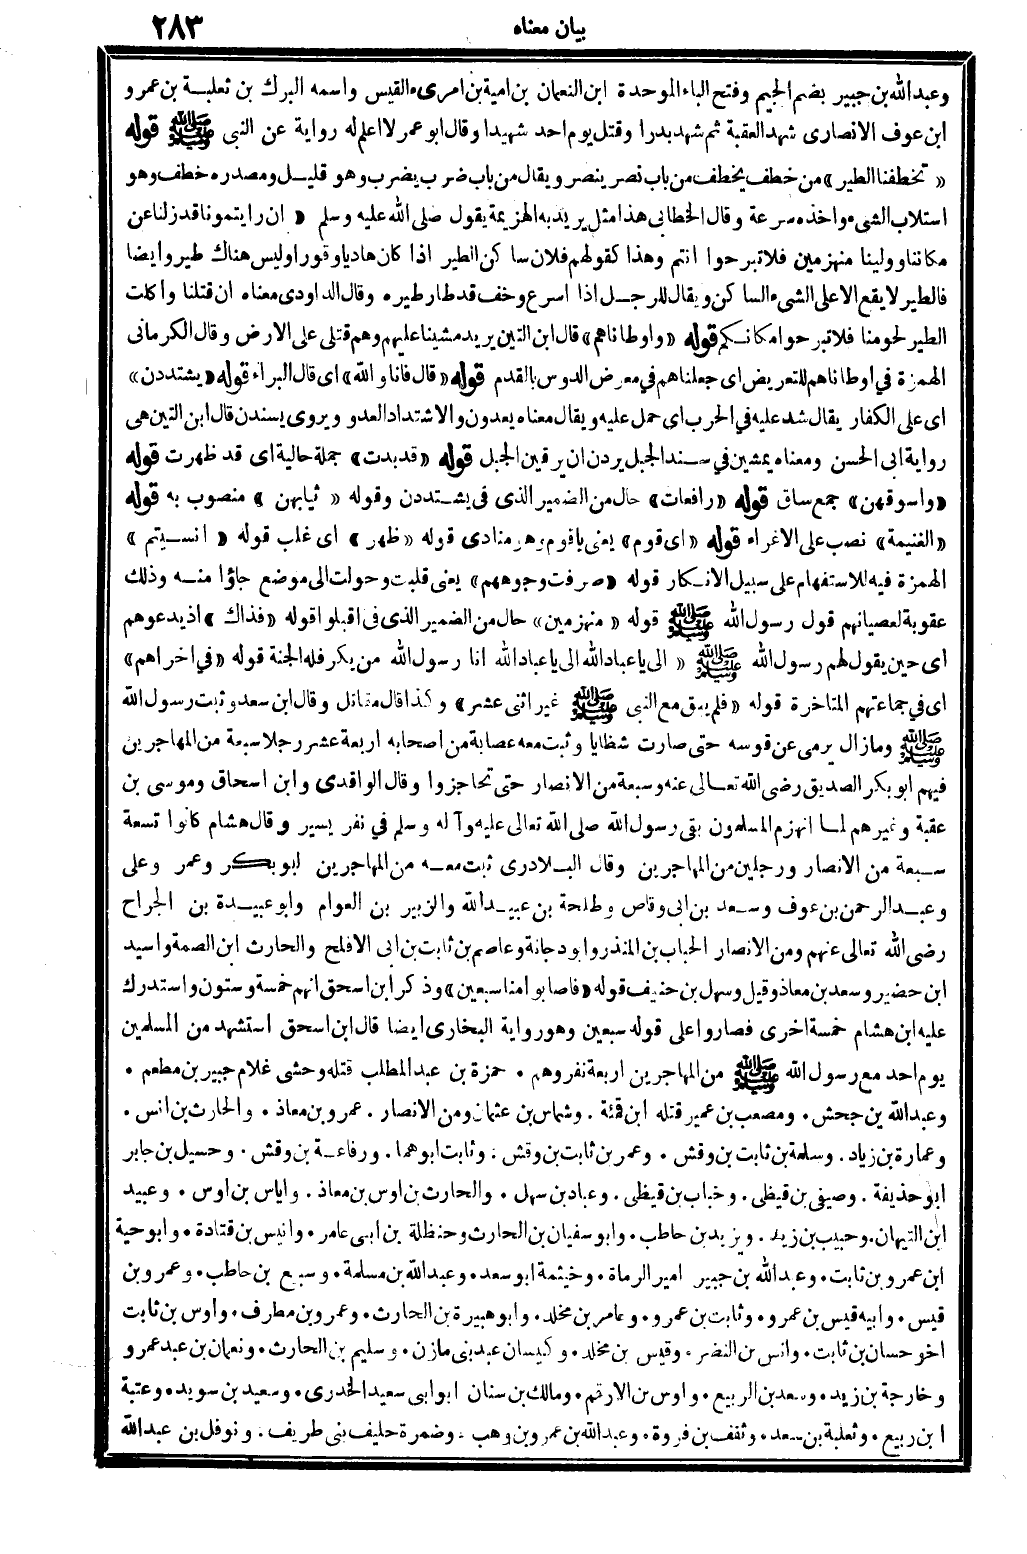 بيان معناه ٢٨٣
وعبدالله بن جبير بضم الجيم وفتح الباء الموحدة ابن النعمان بن امية بن امرىء القيس واسمه البرك بن ثعلبة بن عمرو
ابن عوف الانصارى شهد العقبة ثم شهد بدرا وقتل يوم احد شهيدا وقال ابو عمر لا اعلم له رواية عن النبى ﷺ قوله
« تخطفنا الطير» من خطف يخطف من باب نصر ينصر ويقال من باب ضرب يضرب وهو قليل ومصدره خطف وهو
استلاب الشىء واخذه بسرعة وقال الخطابى هذا مثل يريد به الهزيمة يقول صلى الله عليه وسلم « ان رايتمونا قد زلنا عن
مكاننا وولينا منهزمين فلا تبرحوا انتم وهذا كقولهم فلان ساكن الطير اذا كان هاديا وقورا وليس هناك طير وايضا
فالطير لا يقع الا على الشىء الساكن ويقال للرجل اذا اسرع وخف قد طار طيره وقال الداودى معناه ان قتلنا واكلت
الطير لحومنا فلا تبرحوا مكانكم قوله «واوطاناهم» قال ابن التين يريد مشينا عليهم وهم قتلى على الارض وقال الكرمانى
الهمزة فى اوطاناهم للتعريض اى جعلناهم فى معرض الدوس بالقدم قوله «قال فانا والله» اى قال البراء قوله «يشتددن»
اى على الكفار يقال شد عليه فى الحرب اى حمل عليه ويقال معناه يعدون والاشتداد العدو ويروى يسندن قال ابن التين هى
رواية ابى الحسن ومعناه يمشين فى سند الجبل يردن ان يرقين الجبل قوله «قدبدت» جملة حالية اى قد ظهرت قوله
«واسوقهن» جمع ساق قوله «رافعات» حال من الضمير الذى فى يشتددن وقوله « ثيابهن » منصوب به قوله
«الغنيمة» نصب على الاغراء قوله «اى قوم» يعنى ياقوم وهو منادى قوله «ظهر» اى غلب قوله « انسيتم »
الهمزة فيه للاستفهام على سبيل الانكار قوله «صرفت وجوههم» يعنى قلبت وحولت الى موضع جاؤا منه وذلك
عقوبة لعصيانهم قول رسول الله ﷺ قوله « منهزمين» حال من الضمير الذى فى اقبلوا قوله «فذاك » اذ يدعوهم
اى حين يقول لهم رسول الله ﷺ « الى ياعباد الله الى ياعباد الله انا رسول الله من يكر فله الجنة قوله «فى اخراهم»
اى فى جماعتهم المتاخرة قوله «فلم يبق مع النبى ﷺ غير اثنى عشر» وكذا قال مقاتل وقال ابن سعد وثبت رسول الله
ﷺ ومازال يرمى عن قوسه حتى صارت شظايا وثبت معه عصابة من اصحابه اربعة عشر رجلا سبعة من المهاجرين
فيهم ابو بكر الصديق رضى الله تعالى عنه وسبعة من الانصار حتى تحاجزوا وقال الواقدى وابن اسحاق وموسى بن
عقبة وغيرهم لما انهزم المسلمون بقى رسول الله صلى الله تعالى عليه وآله وسلم فى نفر يسير وقال هشام كانوا تسعة
سبعة من الانصار ورجلين من المهاجرين وقال البلاذرى ثبت معه من المهاجرين ابو بكر وعمر وعلى
وعبد الرحمن بن عوف وسعد بن ابى وقاص وطلحة بن عبيد الله والزبير بن العوام وابو عبيدة بن الجراح
رضى الله تعالى عنهم ومن الانصار الحباب بن المنذر وابو دجانة وعاصم بن ثابت بن ابى الافلح والحارث ابن الصمة واسيد
ابن حضير وسعد بن معاذ وقيل وسهل بن حنيف قوله «فاصابوا منا سبعين» وذكر ابن اسحق انهم خمسة وستون واستدرك
عليه ابن هشام خمسة اخرى فصاروا على قوله سبعين وهو رواية البخارى ايضا قال ابن اسحق استشهد من المسلمين
يوم احد مع رسول الله ﷺ من المهاجرين اربعة نفر وهم . حمزة بن عبد المطلب قتله وحشى غلام جبير بن مطعم .
وعبدالله بن جحش . ومصعب بن عمير قتله ابن قمئة . وشماس بن عثمان ومن الانصار . عمرو بن معاذ . والحارث بن انس .
وعمارة بن زياد . وسلمة بن ثابت بن وقش . وعمر بن ثابت بن وقش . وثابت ابوهما . ورفاعة بن وقش . وحسيل بن جابر
ابو حذيفة . وصيفى بن قيظى . وخباب بن قيظى . وعباد بن سهل . والحارث بن اوس بن معاذ . واياس بن اوس . وعبيد
ابن التيهان . وحبيب بن زيد . ويزيد بن حاطب . وابو سفيان بن الحارث وحنظلة بن ابى عامر . وانيس بن قتادة . وابو حية
ابن عمرو بن ثابت . وعبدالله بن جبير امير الرماة . وخيثمة ابو سعد . وعبدالله بن مسلمة . وسبيع بن حاطب . وعمرو بن
قيس . وابيه قيس بن عمرو . وثابت بن عمرو . وعامر بن مخلد . وابو هبيرة بن الحارث . وعمرو بن مطرف . واوس بن ثابت
اخو حسان بن ثابت . وانس بن النضر . وقيس بن مخلد . وكيسان عبد بنى مازن . وسليم بن الحارث . ونعمان بن عبد عمرو
وخارجة بن زيد . وسعد بن الربيع . واوس بن الارقم . ومالك بن سنان ابو ابى سعيد الخدرى . وسعيد بن سويد . وعتبة
ابن ربيع . وثعلبة بن سعد . وثقف بن فروة . وعبدالله بن عمرو بن وهب . وضمرة حليف بنى طريف . ونوفل بن عبدالله